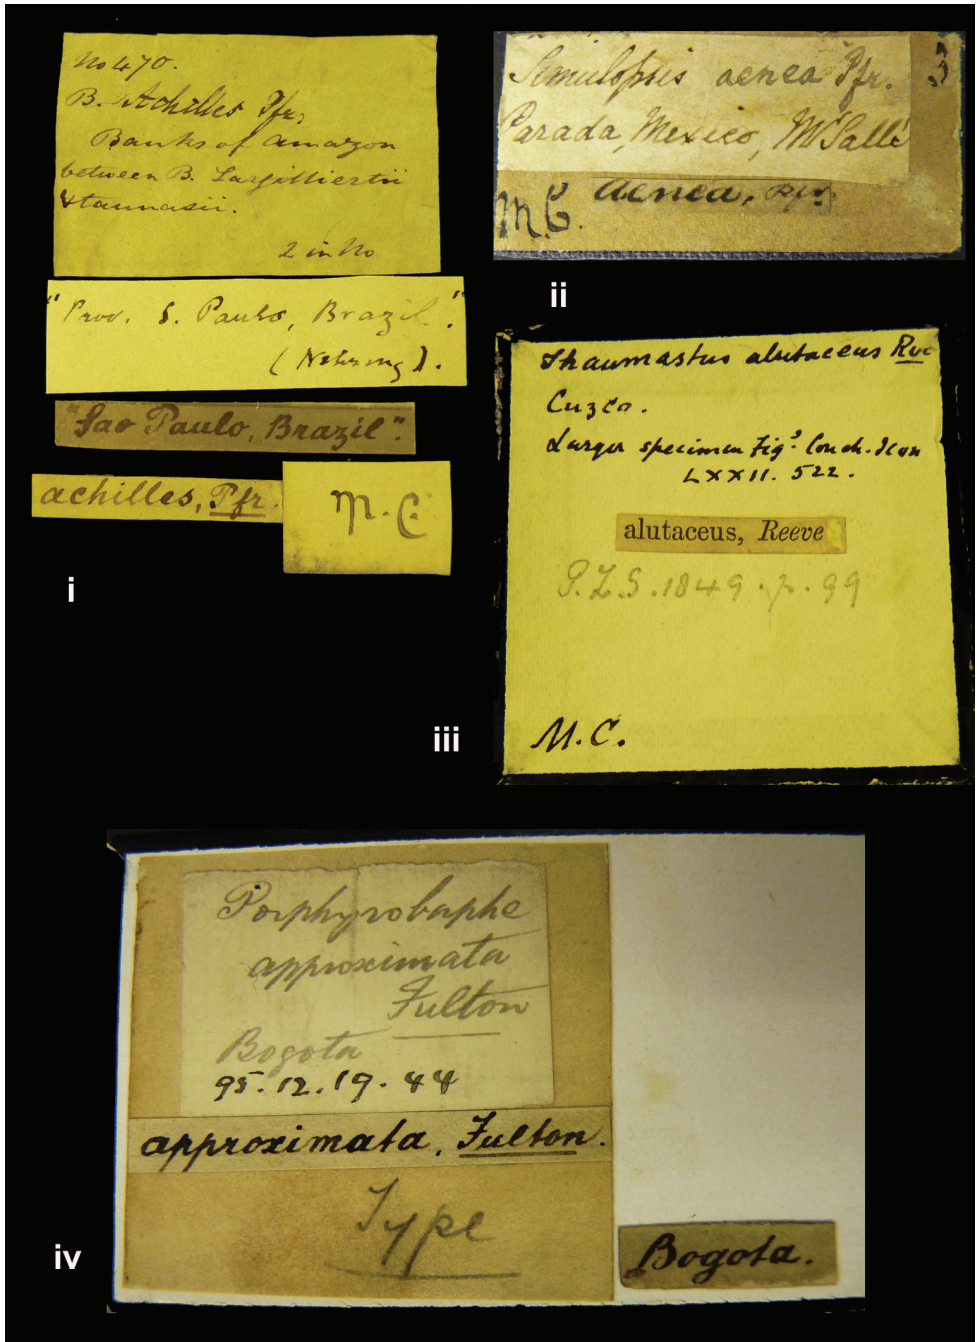 No 470.
B. Achilles Pfr.
Banks of Amazon
between B. Largilliertii
& taunasii.
2 in No
"Prov. S. Paulo, Brazil."
(Nehring).
"Sao Paulo, Brazil".
achilles, Pfr.
M.C.
i
Simulopsis aenea Pfr.
Parada, Mexico, Mr Sallé
aenea, Pfr.
M.C.
ii
Thaumastus alutaceus Rve
Cuzco.
Larger specimen Figd. Conch. Icon
LXXII. 522.
alutaceus, Reeve
P.Z.S. 1849. p. 99
M.C.
iii
Porphyrobaphe
approximata
Fulton
Bogota
95.12.19.44
approximata, Fulton.
Type
Bogota.
iv